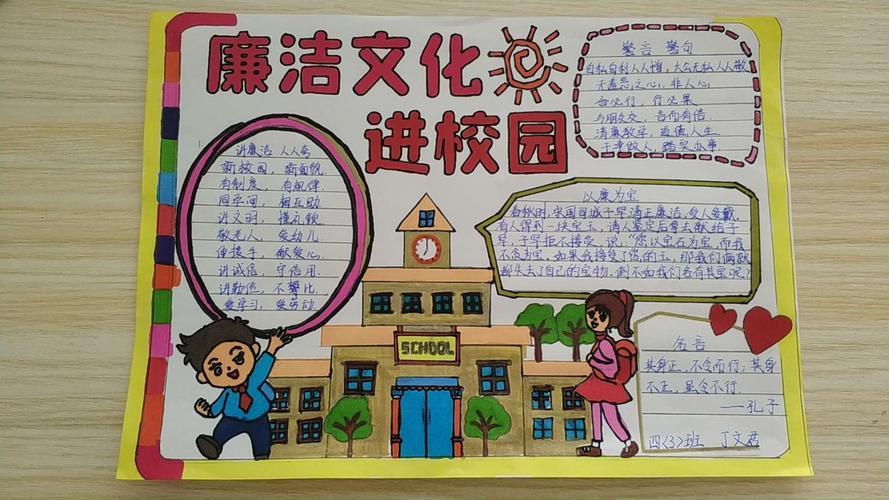 廉洁文化
进校园
讲廉洁 人人夸
新校园, 新面貌.
有制度, 有规律.
同学间, 相互助.
讲文明, 懂礼貌,
敬老人, 爱幼儿.
伸援手, 献爱心.
讲诚信 守信用.
讲勤俭, 不攀比.
爱学习, 爱劳动.
警言 警句
自私自利人人憎, 大公无私人人敬
无羞恶之心, 非人心.
言必行, 行必果.
与朋友交, 言而有信.
清廉教学, 道德人生
干净做人, 踏实办事.
以廉为宝
春秋时, 宋国司城子罕清正廉洁, 受人爱戴,
有人得到一块宝玉, 请人鉴定后拿去献给子
罕, 子罕拒不接受, 说: "您以宝石为宝, 而我
不贪为宝. 如果我接受了您的玉, 那我们俩就
都失去了自己的宝物, 倒不如我们各有其宝呢?
SCHOOL
名言
其身正, 不令而行; 其身
不正, 虽令不行.
——孔子
四(3)班 丁文君